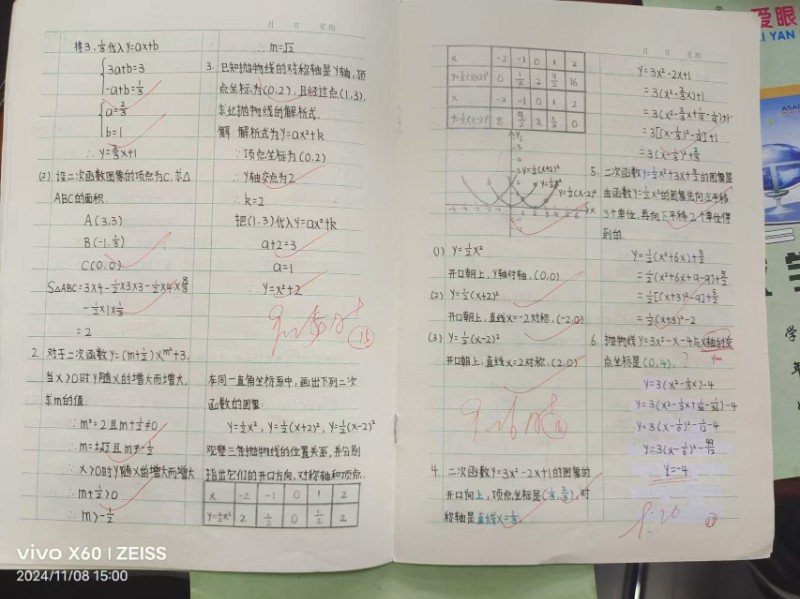 月 日 星期
将3,⅓代入y=ax+b
3a+b=3
-a+b=⅓
a=⅔
b=1
∴y=⅔x+1
(2) 设二次函数图象的顶点为C,求△
ABC的面积.
A(3,3)
B(-1,⅓)
C(0,0)
=2
2. 对于二次函数y=(m+½)x^m²+3,
当x>0时y随x的增大而增大,
求m的值.
∴m²=2且m+½≠0
∴m=±√2且m≠-½
∵x>0时y随x的增大而增大
∴m+½>0
∴m>-½
∴m=√2
3. 已知抛物线的对称轴是y轴,顶
点坐标为(0,2),且经过点(1,3),
求此抛物线的解析式.
解:解析式为y=ax²+k
∵顶点坐标为(0,2)
∴y轴交点为2
∴k=2
把(1,3)代入y=ax²+k
a+2=3
a=1
∴y=x²+2
在同一直角坐标系中,画出下列二次
函数的图象:
y=½x², y=½(x+2)², y=½(x-2)²
观察三条抛物线的位置关系,并分别
指出它们的开口方向,对称轴和顶点.
x -2 -1 0 1 2
y=½x² 2 ½ 0 ½ 2
x -2 -1 0 1 2
y=½(x+2)² 0 ½ 2 9/2 16
x -2 -1 0 1 2
y=½(x-2)² 8 9/2 2 ½ 0
y=½(x+2)²
y=½x²
y=½(x-2)²
(1) y=½x²
开口朝上,y轴对轴,(0,0)
(2) y=½(x+2)²
开口朝上,直线x=-2对称,(-2,0)
(3) y=½(x-2)²
开口朝上,直线x=2对称,(2,0)
4. 二次函数y=3x²-2x+1的图象的
开口向上,顶点坐标是(⅓,⅔),对
称轴是直线x=⅓.
月 日 星期
y=3x²-2x+1
=3(x²-⅔x)+1
=3[(x-⅓)²-1/9]+1
=3(x-⅓)²+⅔
5. 二次函数y=½x²+3x+5/2的图象是
由函数y=½x²的图象先向左平移
3个单位,再向下平移2个单位得
到的.
y=½(x²+6x)+5/2
=½(x²+6x+9-9)+5/2
=½[(x+3)²-9]+5/2
=½(x+3)²-2
6. 抛物线y=3x²-x-4与x轴的交
点坐标是(0,4).
y=3(x²-⅓x)-4
y=-4
爱眼
vivo X60 | ZEISS
2024/11/08 15:00